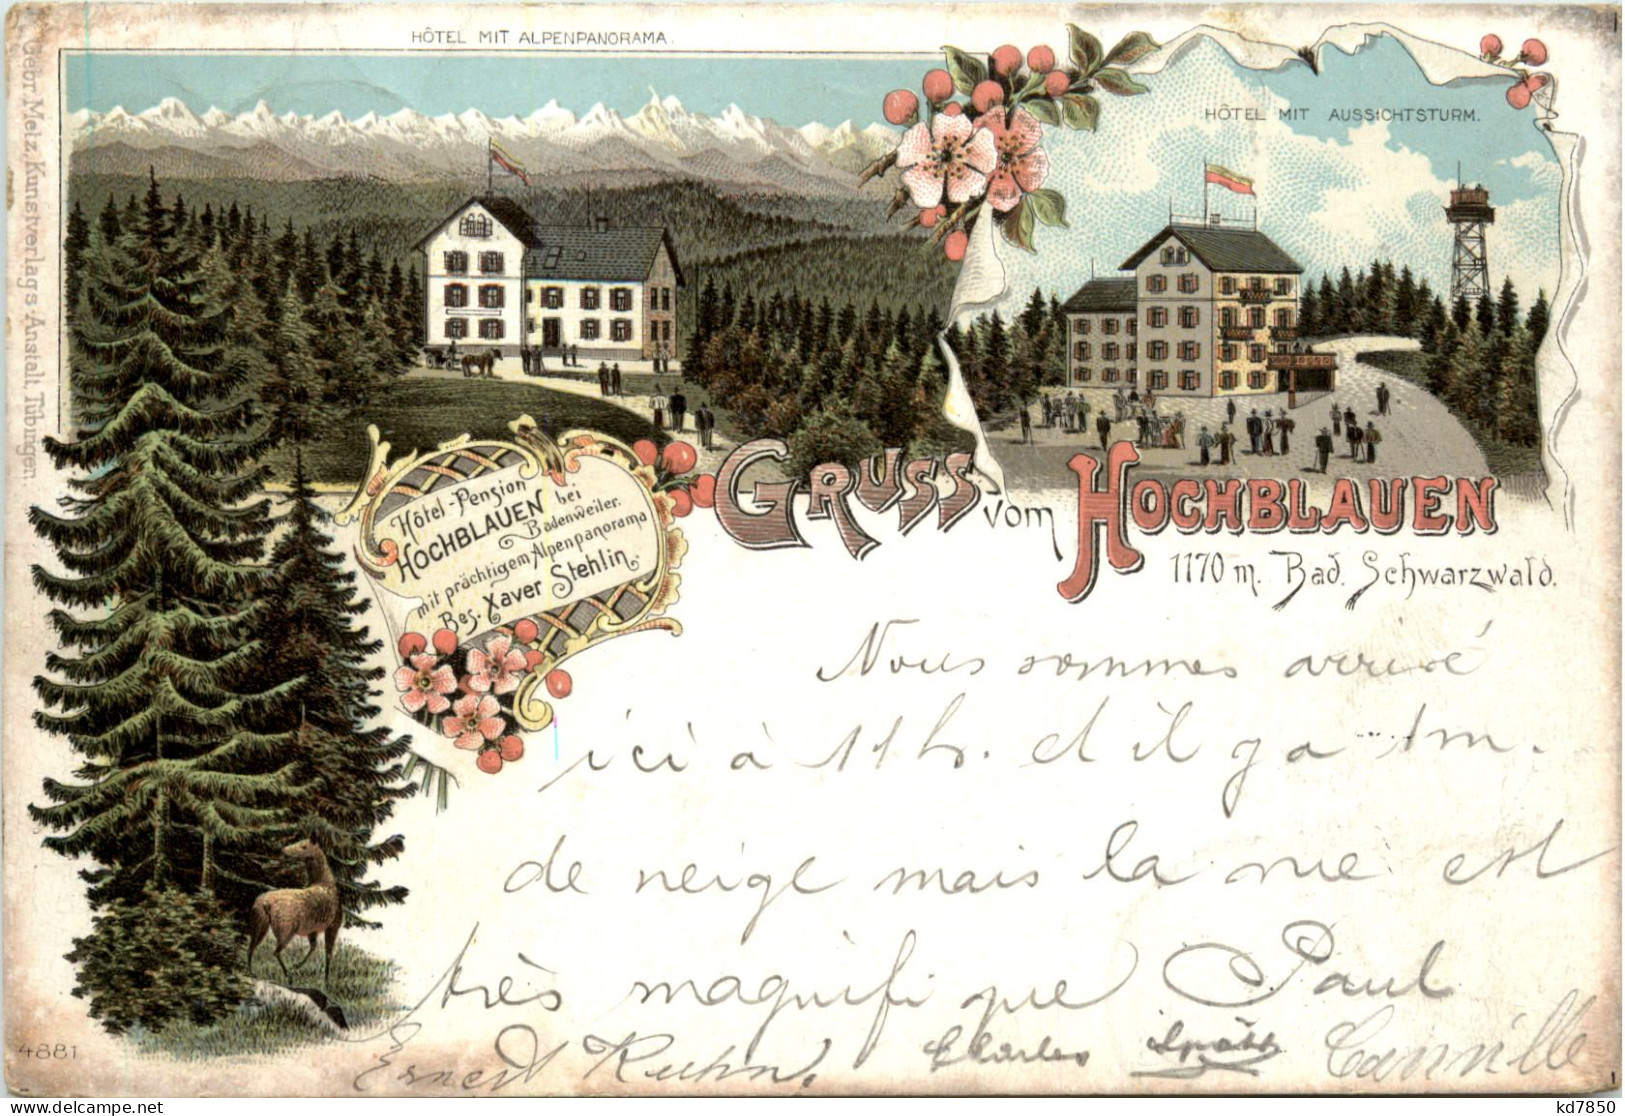 HÔTEL MIT ALPENPANORAMA.
HÔTEL MIT AUSSICHTSTURM.
Gebr. Metz, Kunstverlags-Anstalt, Tübingen.
Hôtel-Pension
HOCHBLAUEN bei
Badenweiler.
mit prächtigem Alpenpanorama
Bes. Xaver Stehlin.
GRUSS vom HOCHBLAUEN
1170 m. Bad. Schwarzwald.
Nous sommes arrivé
ici à 11 h. et il y a 1 m.
de neige mais la vue est
très magnifique Paul
Ernest Kuhn, Charles Camille
4881
kd7850